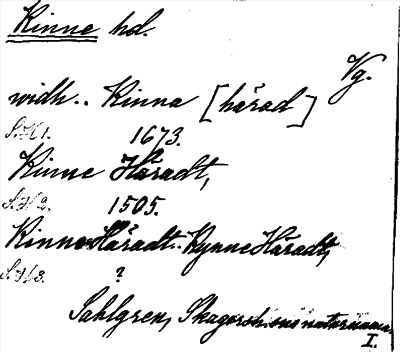 Kinne hd.
Vg.
widh.. Kinna [härad]
S.H1. 1673.
Kinne Häradt,
S.H2. 1505.
Kinne Häradt.. Kynne Häradt,
S.H3. ?
Sahlgren, Skagershems naturnamn
I.